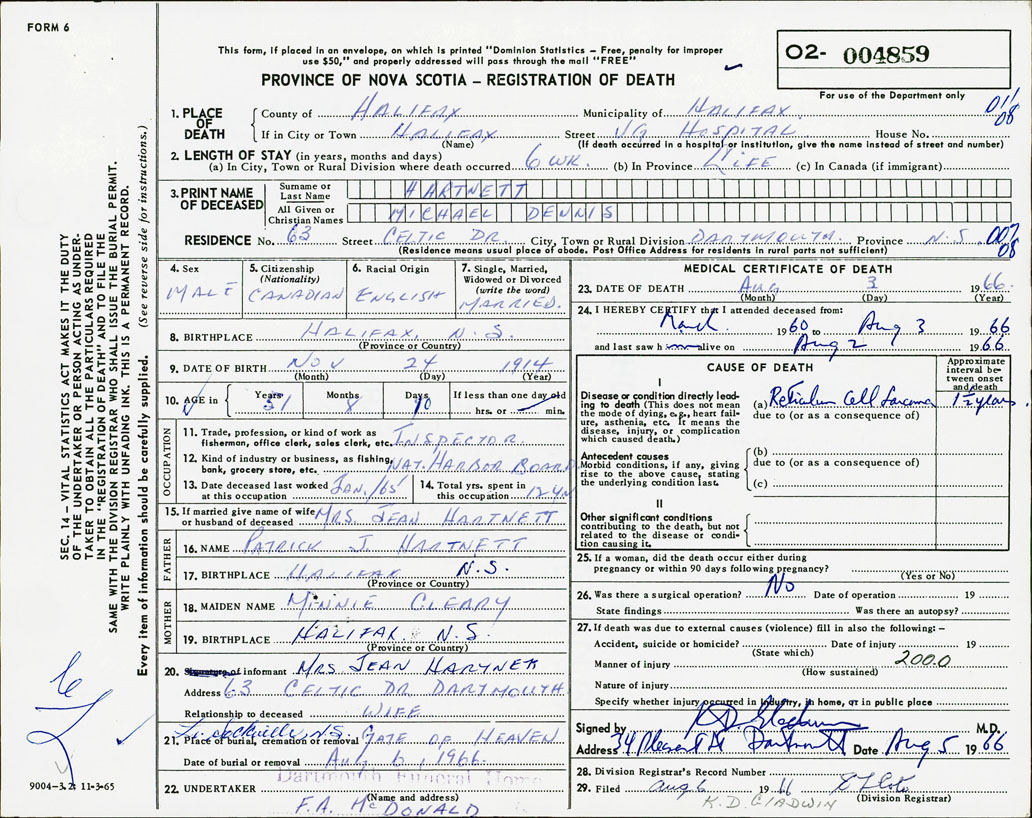 FORM 6
This form, if placed in an envelope, on which is printed "Dominion Statistics - Free, penalty for improper
use $50," and properly addressed will pass through the mail "FREE"
PROVINCE OF NOVA SCOTIA - REGISTRATION OF DEATH
02- 004859
For use of the Department only
SEC. 14 - VITAL STATISTICS ACT MAKES IT THE DUTY
OF THE UNDERTAKER OR PERSON ACTING AS UNDER-
TAKER TO OBTAIN ALL THE PARTICULARS REQUIRED
IN THE "REGISTRATION OF DEATH" AND TO FILE THE
SAME WITH THE DIVISION REGISTRAR WHO SHALL ISSUE THE BURIAL PERMIT.
WRITE PLAINLY WITH UNFADING INK. THIS IS A PERMANENT RECORD.
Every item of information should be carefully supplied. (See reverse side for instructions.)
1. PLACE OF DEATH
County of HALIFAX Municipality of HALIFAX 011 08
If in City or Town HALIFAX Street VG HOSPITAL House No.
(Name) (If death occurred in a hospital or institution, give the name instead of street and number)
2. LENGTH OF STAY (in years, months and days)
(a) In City, Town or Rural Division where death occurred 6 WK. (b) In Province LIFE (c) In Canada (if immigrant)
3. PRINT NAME OF DECEASED
Surname or Last Name HARTNETT
All Given or Christian Names MICHAEL DENNIS
RESIDENCE No. 63 Street CELTIC DR. City, Town or Rural Division DARTMOUTH Province N.S. 007 08
(Residence means usual place of abode. Post Office Address for residents in rural parts not sufficient)
4. Sex MALE
5. Citizenship (Nationality) CANADIAN
6. Racial Origin ENGLISH
7. Single, Married, Widowed or Divorced (write the word) MARRIED.
8. BIRTHPLACE HALIFAX, N.S.
(Province or Country)
9. DATE OF BIRTH NOV 24 1914
(Month) (Day) (Year)
10. AGE in Years 51 Months 8 Days 10 If less than one day old hrs. or min.
OCCUPATION
11. Trade, profession, or kind of work as
fisherman, office clerk, sales clerk, etc. INSPECTOR
12. Kind of industry or business, as fishing,
bank, grocery store, etc. NAT. HARBOR BOARD
13. Date deceased last worked at this occupation JAN./65
14. Total yrs. spent in this occupation 12
15. If married give name of wife
or husband of deceased MRS. JEAN HARTNETT
FATHER
16. NAME PATRICK J. HARTNETT
17. BIRTHPLACE HALIFAX N.S.
(Province or Country)
MOTHER
18. MAIDEN NAME MINNIE CLEARY
19. BIRTHPLACE HALIFAX N.S.
(Province or Country)
20. Signature of informant MRS JEAN
Address 63 CELTIC DR DARTMOUTH
Relationship to deceased WIFE
Sackville N.S.
21. Place of burial, cremation or removal GATE OF HEAVEN
Date of burial or removal Aug 6, 1966
Dartmouth Funeral Home
22. UNDERTAKER
(Name and address)
F.A. McDONALD
9004-3.2: 11-3-65
MEDICAL CERTIFICATE OF DEATH
23. DATE OF DEATH Aug 3 1966.
(Month) (Day) (Year)
24. I HEREBY CERTIFY that I attended deceased from:
March 1960 to Aug 3 1966
and last saw h alive on Aug 2 1966
CAUSE OF DEATH
Approximate interval between onset and death
I
Disease or condition directly leading to death (This does not mean the mode of dying, e.g., heart failure, asthenia, etc. It means the disease, injury, or complication which caused death.)
(a) Reticulum Cell Sarcoma 1½ years
due to (or as a consequence of)
Antecedent causes
Morbid conditions, if any, giving rise to the above cause, stating the underlying condition last.
(b)
due to (or as a consequence of)
(c)
II
Other significant conditions
contributing to the death, but not related to the disease or condition causing it.
25. If a woman, did the death occur either during
pregnancy or within 90 days following pregnancy?
(Yes or No)
26. Was there a surgical operation? No Date of operation 19
State findings Was there an autopsy?
27. If death was due to external causes (violence) fill in also the following: -
Accident, suicide or homicide? Date of injury 19
(State which)
Manner of injury 200.0
(How sustained)
Nature of injury
Specify whether injury occurred in industry, in home, or in public place
Signed by M.D.
Address 34 Pleasant St Dartmouth Date Aug 5 1966
28. Division Registrar's Record Number
29. Filed Aug 6 1966
(Division Registrar)
K.D. GLADWIN